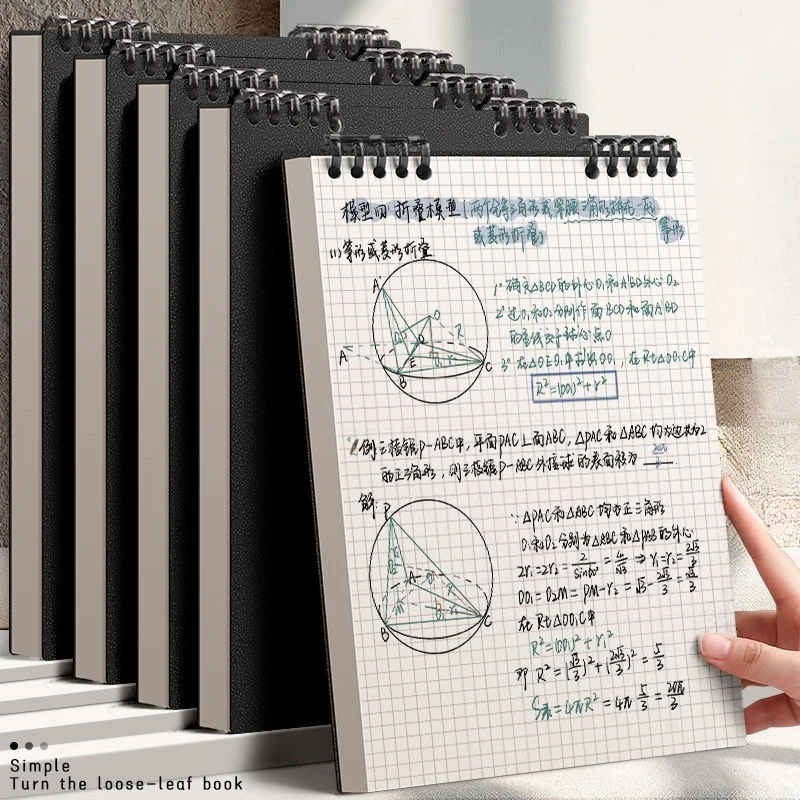 模型四: 折叠模型 (两个全等三角形或等腰三角形拼在一起
或菱形折叠)
等形
(1) 等形或菱形折叠
A'
O
A
R
E
r
B
C
1° 确定△BCD的外心O₁和A'BD外心O₂
2° 过O₁和O₂分别作面BCD和面A'BD
的垂线交于球心点O
3° 在△OEO₁中求出OO₁, 在Rt△OO₁C中
R²=(OO₁)²+r²
例 三棱锥P-ABC中, 平面PAC⊥面ABC, △PAC和△ABC均为边长为2
的正三角形, 则三棱锥P-ABC外接球的表面积为 20π/3.
解:
P
A
B
C
∵ △PAC和△ABC均为正三角形
O₁和O₂分别为△ABC和△PAB的外心
2r₁=2r₂=2/sin60°=4/√3 ⇒ r₁=r₂=2√3/3
OO₁=O₂M=PM-r₂=√3-2√3/3=√3/3
在Rt△OO₁C中
R²=(OO₁)²+r₁²
即 R²=(√3/3)²+(2√3/3)²=5/3
S表=4πR²=4π 5/3=20π/3
Simple
Turn the loose-leaf book